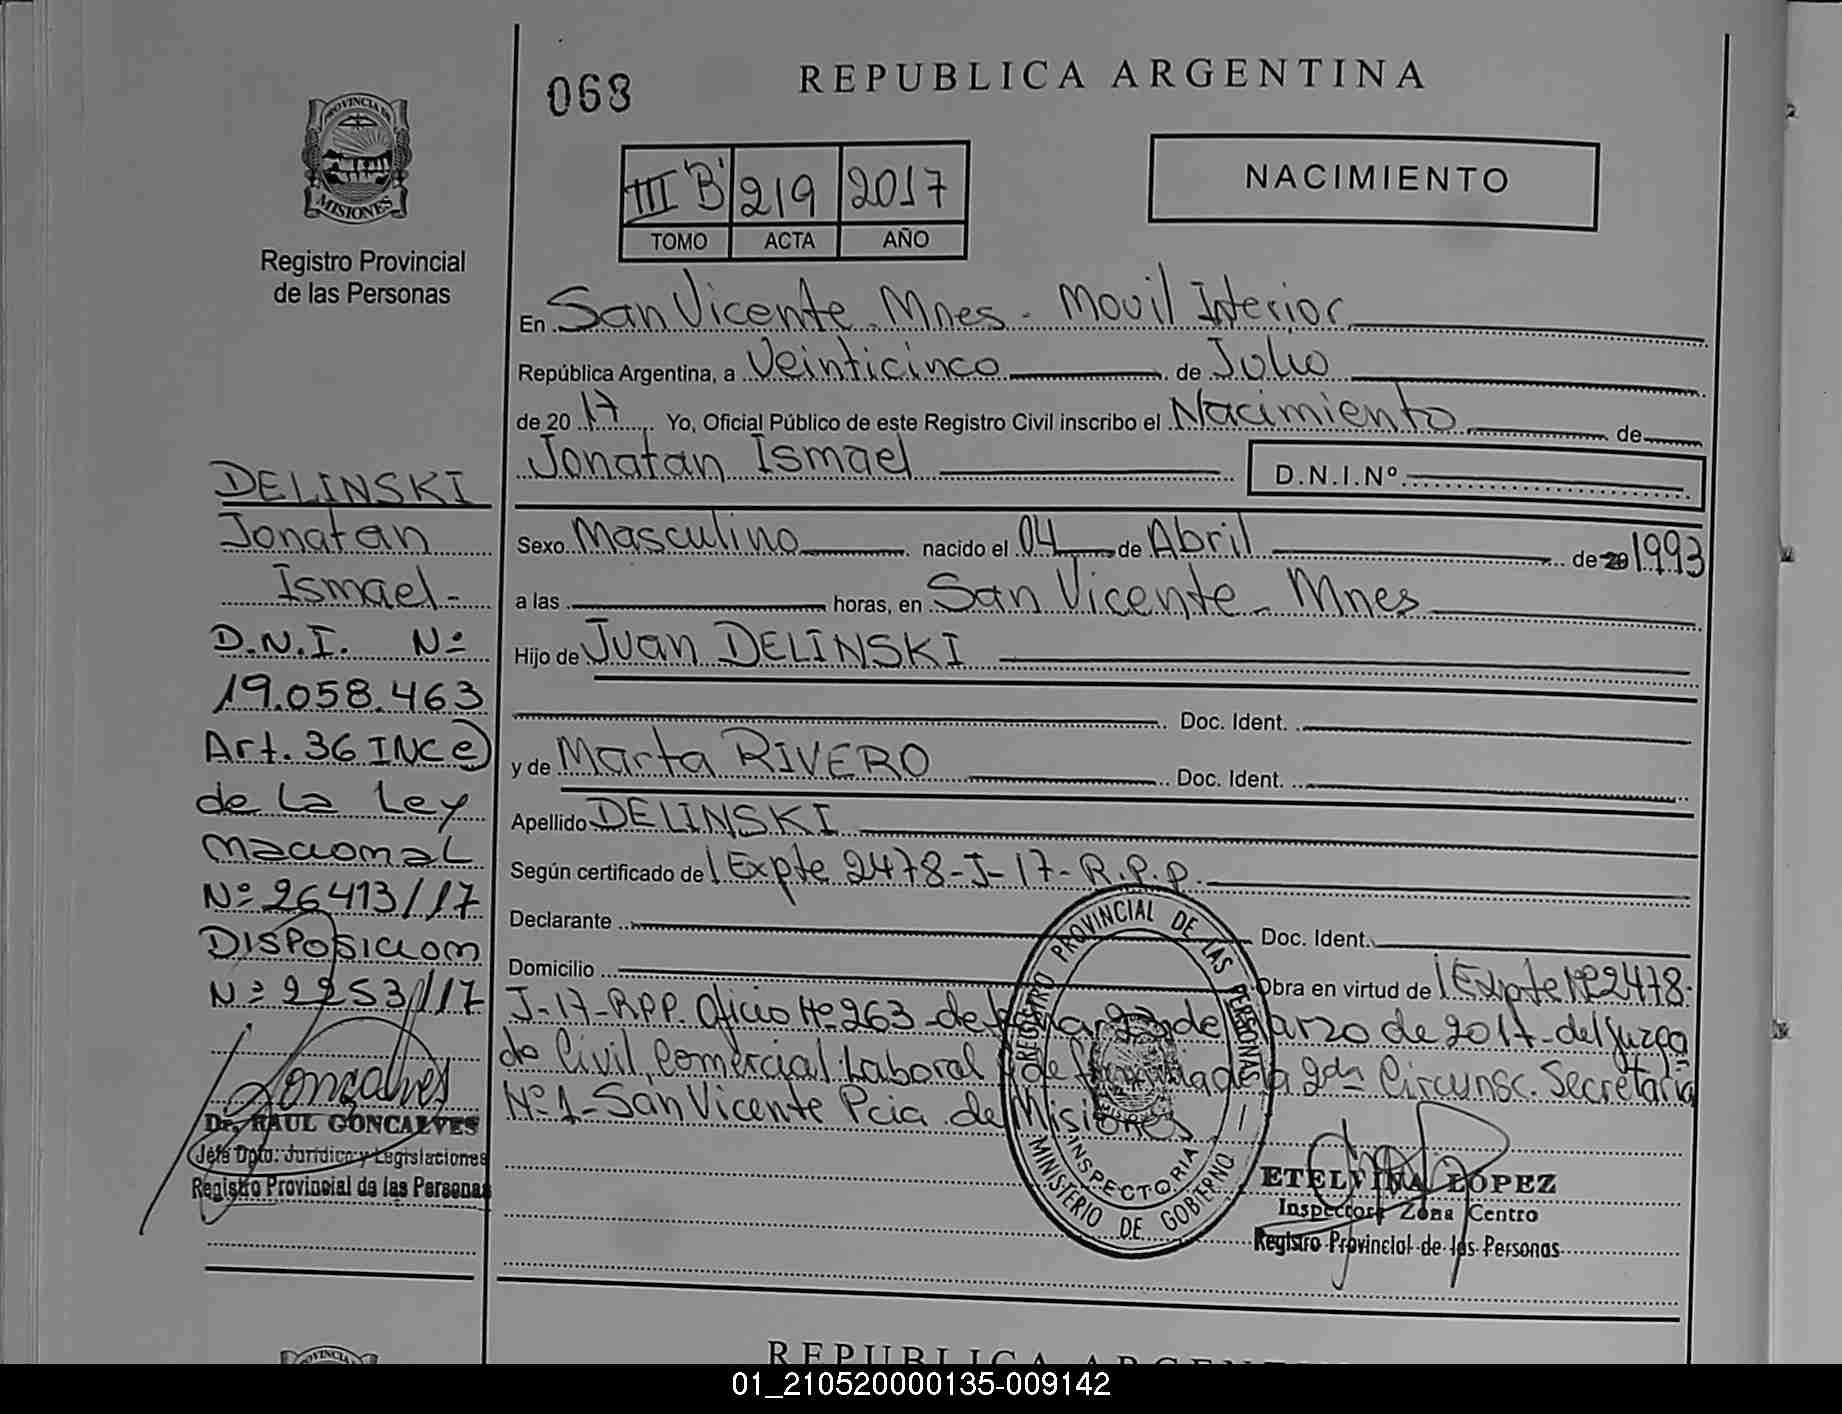 068
REPUBLICA ARGENTINA
PROVINCIA DE
MISIONES
Registro Provincial
de las Personas
III "B" 219 2017
TOMO ACTA AÑO
NACIMIENTO
En San Vicente. Mnes - Movil Interior
República Argentina, a Veinticinco de Julio
de 2017 Yo, Oficial Público de este Registro Civil inscribo el Nacimiento de
Jonatan Ismael D.N.I.Nº
Sexo Masculino nacido el 04 de Abril de 20 1993
a las horas, en San Vicente - Mnes
Hijo de Juan DELINSKI
Doc. Ident.
y de Marta RIVERO Doc. Ident.
Apellido DELINSKI
Según certificado de Expte 2478-J-17-R.P.P.
Declarante Doc. Ident.
Domicilio Obra en virtud de Expte Nº 2478-
J-17-RPP. Oficio Nº 263 de Marzo de 2017 - del Juzga
do Civil, Comercial, Laboral y de Familia de la 2da Circunsc. Secretaria
Nº 1 - San Vicente Pcia de Misiones
REGISTRO PROVINCIAL DE LAS PERSONAS
INSPECTORIA
MINISTERIO DE GOBIERNO
ETELVINA LOPEZ
Inspectora Zona Centro
Registro Provincial de las Personas
DELINSKI
Jonatan
Ismael -
D.N.I. Nº
19.058.463
Art. 36 INC e)
de La Ley
Nacional
Nº 26413/17
DISPOSICION
Nº 2253/17
Goncalves
Dr. RAUL GONCALVES
Jefe Dpto. Jurídico y Legislaciones
Registro Provincial de las Personas
PROVINCIA
REPUBLICA ARGENTINA
01_210520000135-009142